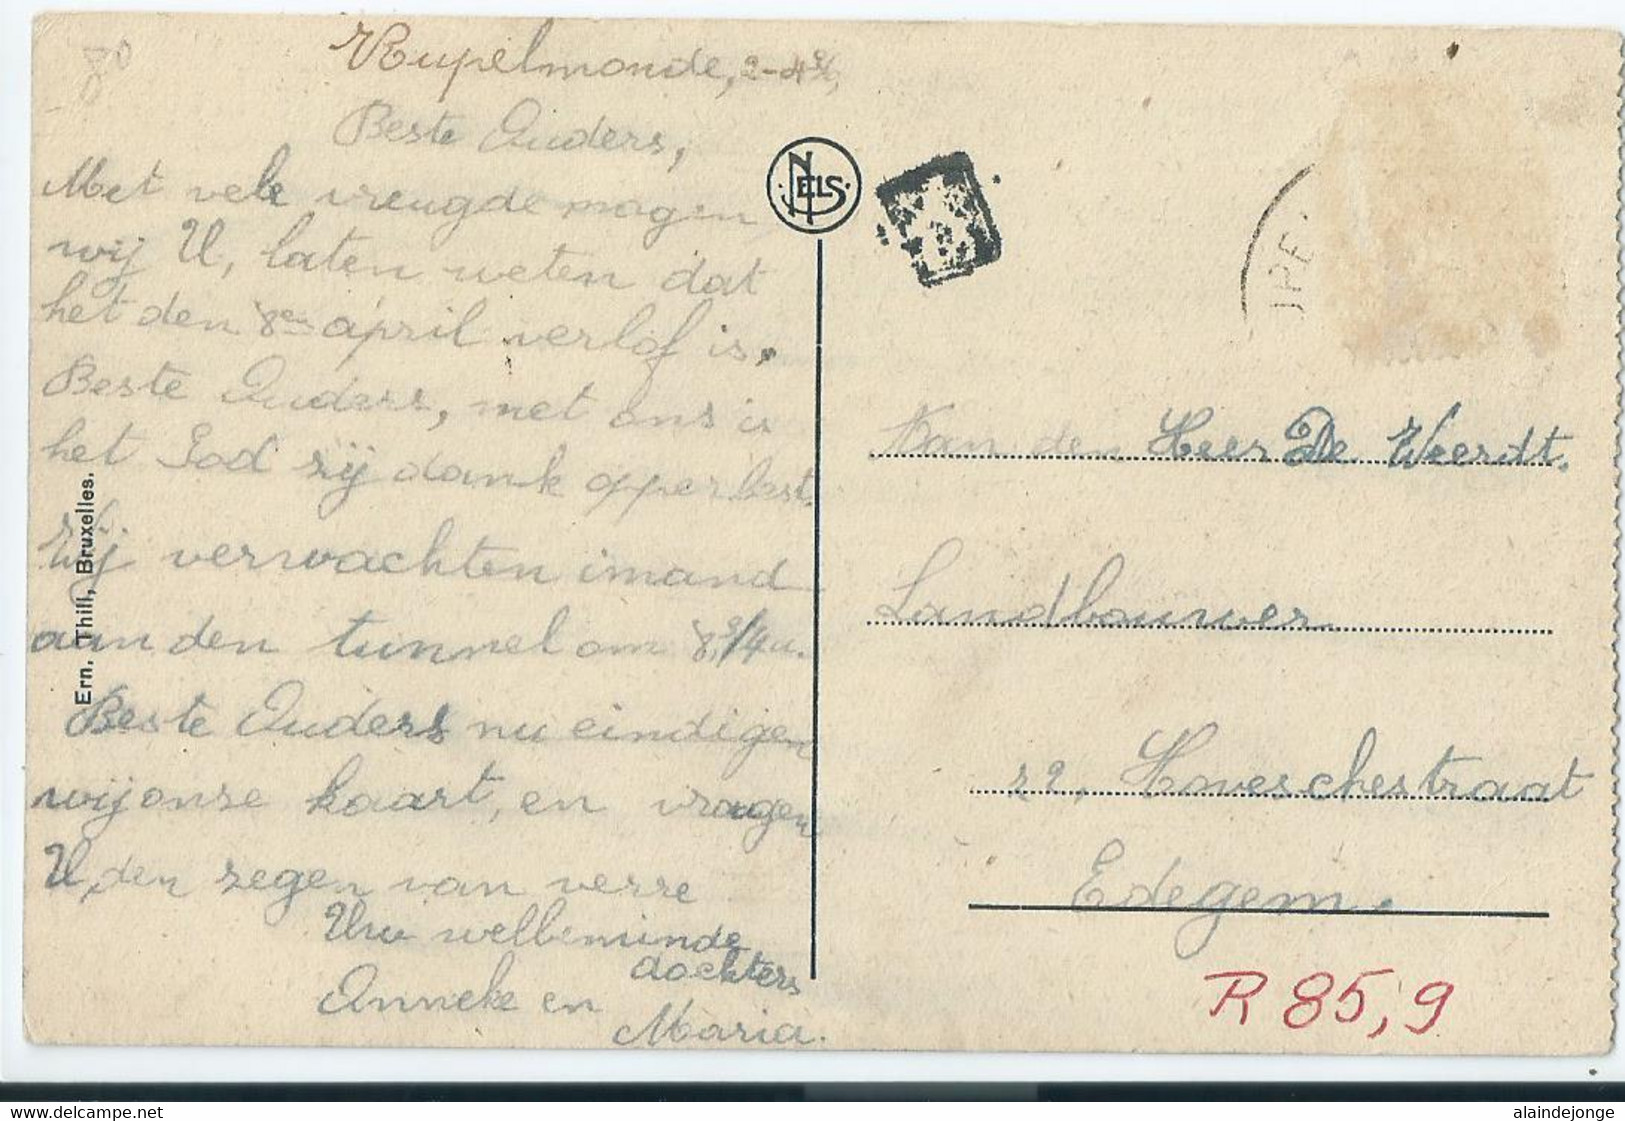 80
Rupelmonde, 2-4
Beste Ouders,
Met vele vreugde mogen
wij U, laten weten dat
het den 8en april verlof is.
Beste Ouders, met ons is
het God zij dank opperbest.
Wij verwachten imand
aan den tunnel om 8,3/4 u.
Beste Ouders nu eindigen
wij onze kaart, en vragen
U, den zegen van verre
Uw welbeminde
dochters
Anneke en
Maria.
Ern. Thill, Bruxelles.
NELS
Aan den Heer De Weerdt.
Landbouwer
22, Hoveschestraat
Edegem.
R 85,9
www.delcampe.net
alaindejonge